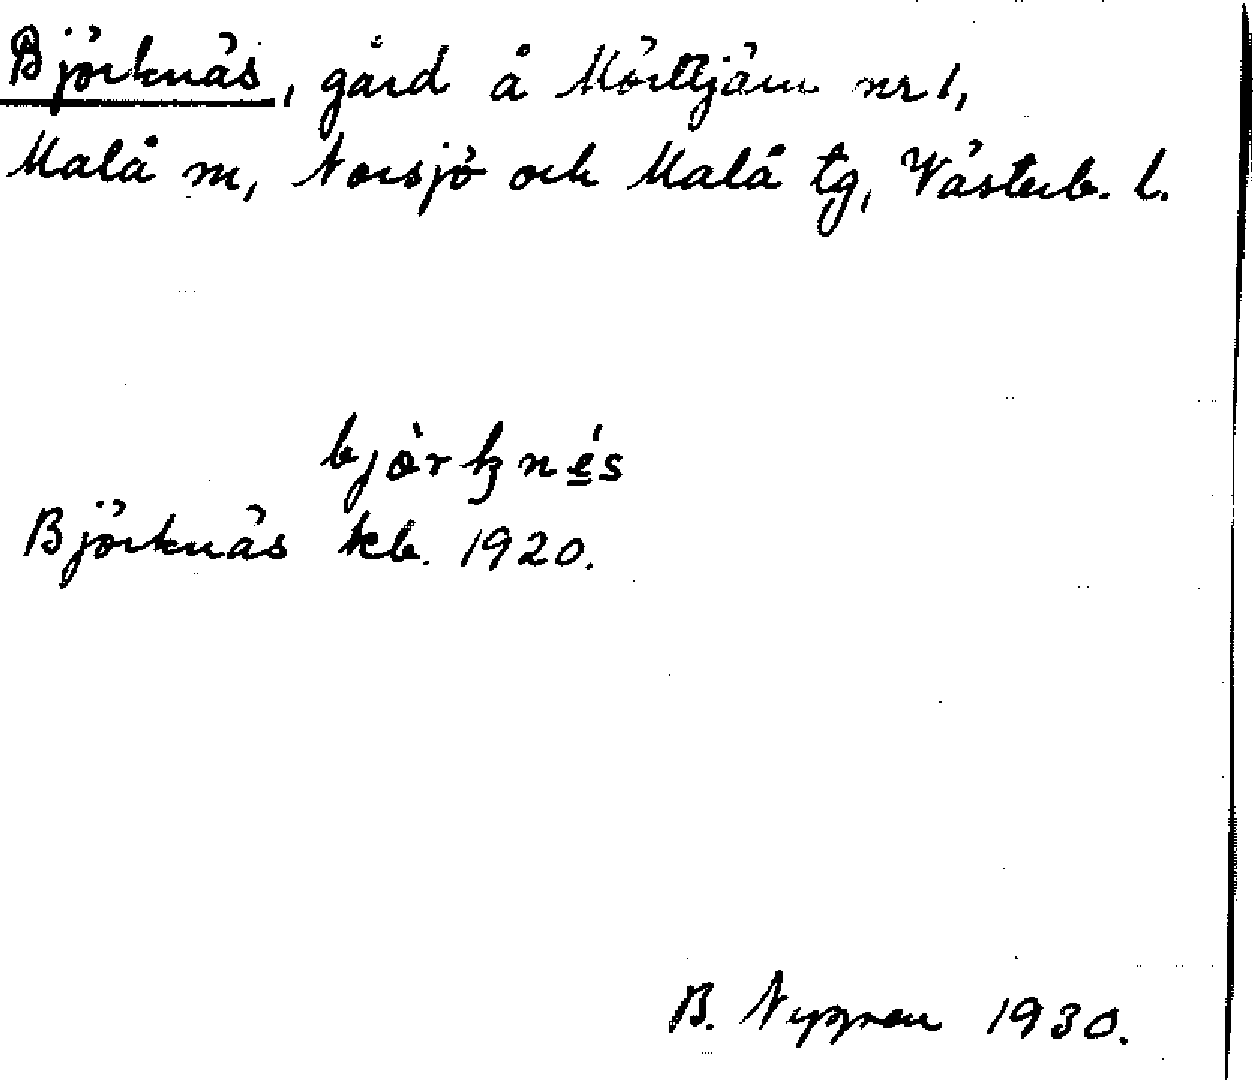 Björknäs, gård å Mörttjärn nr 1,
Malå sn, Norsjö och Malå tg, Västerb. l.
Björknäs kb. 1920.
B. 1930.